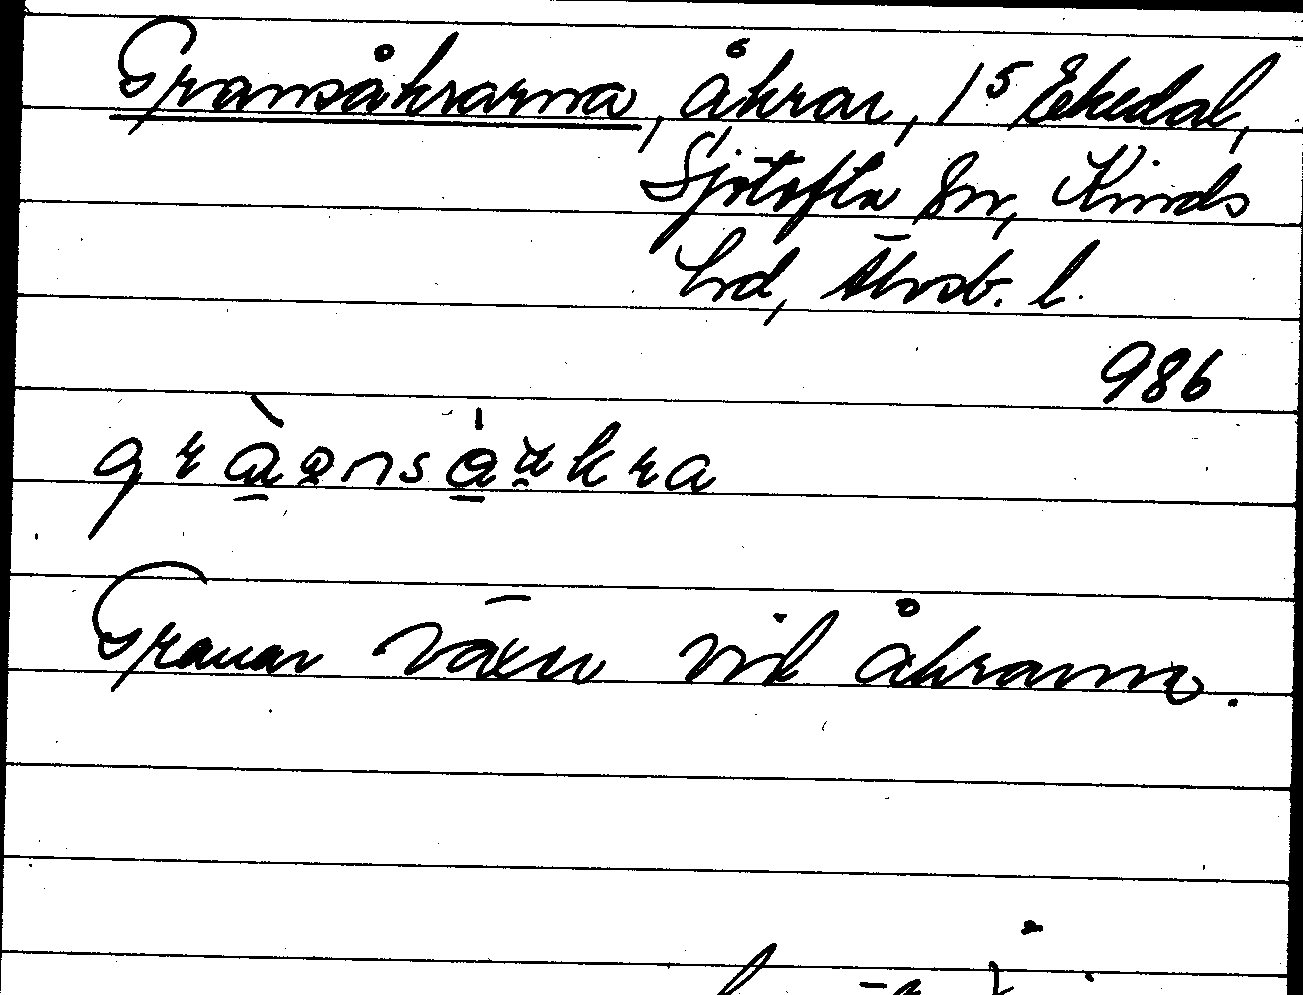 Gransåkrarna, åkrar, 1⁵ Ekedal,
Sjötofta sn, Kinds
hd, Älvsb. l.
986
Granar växer vid åkrarna.